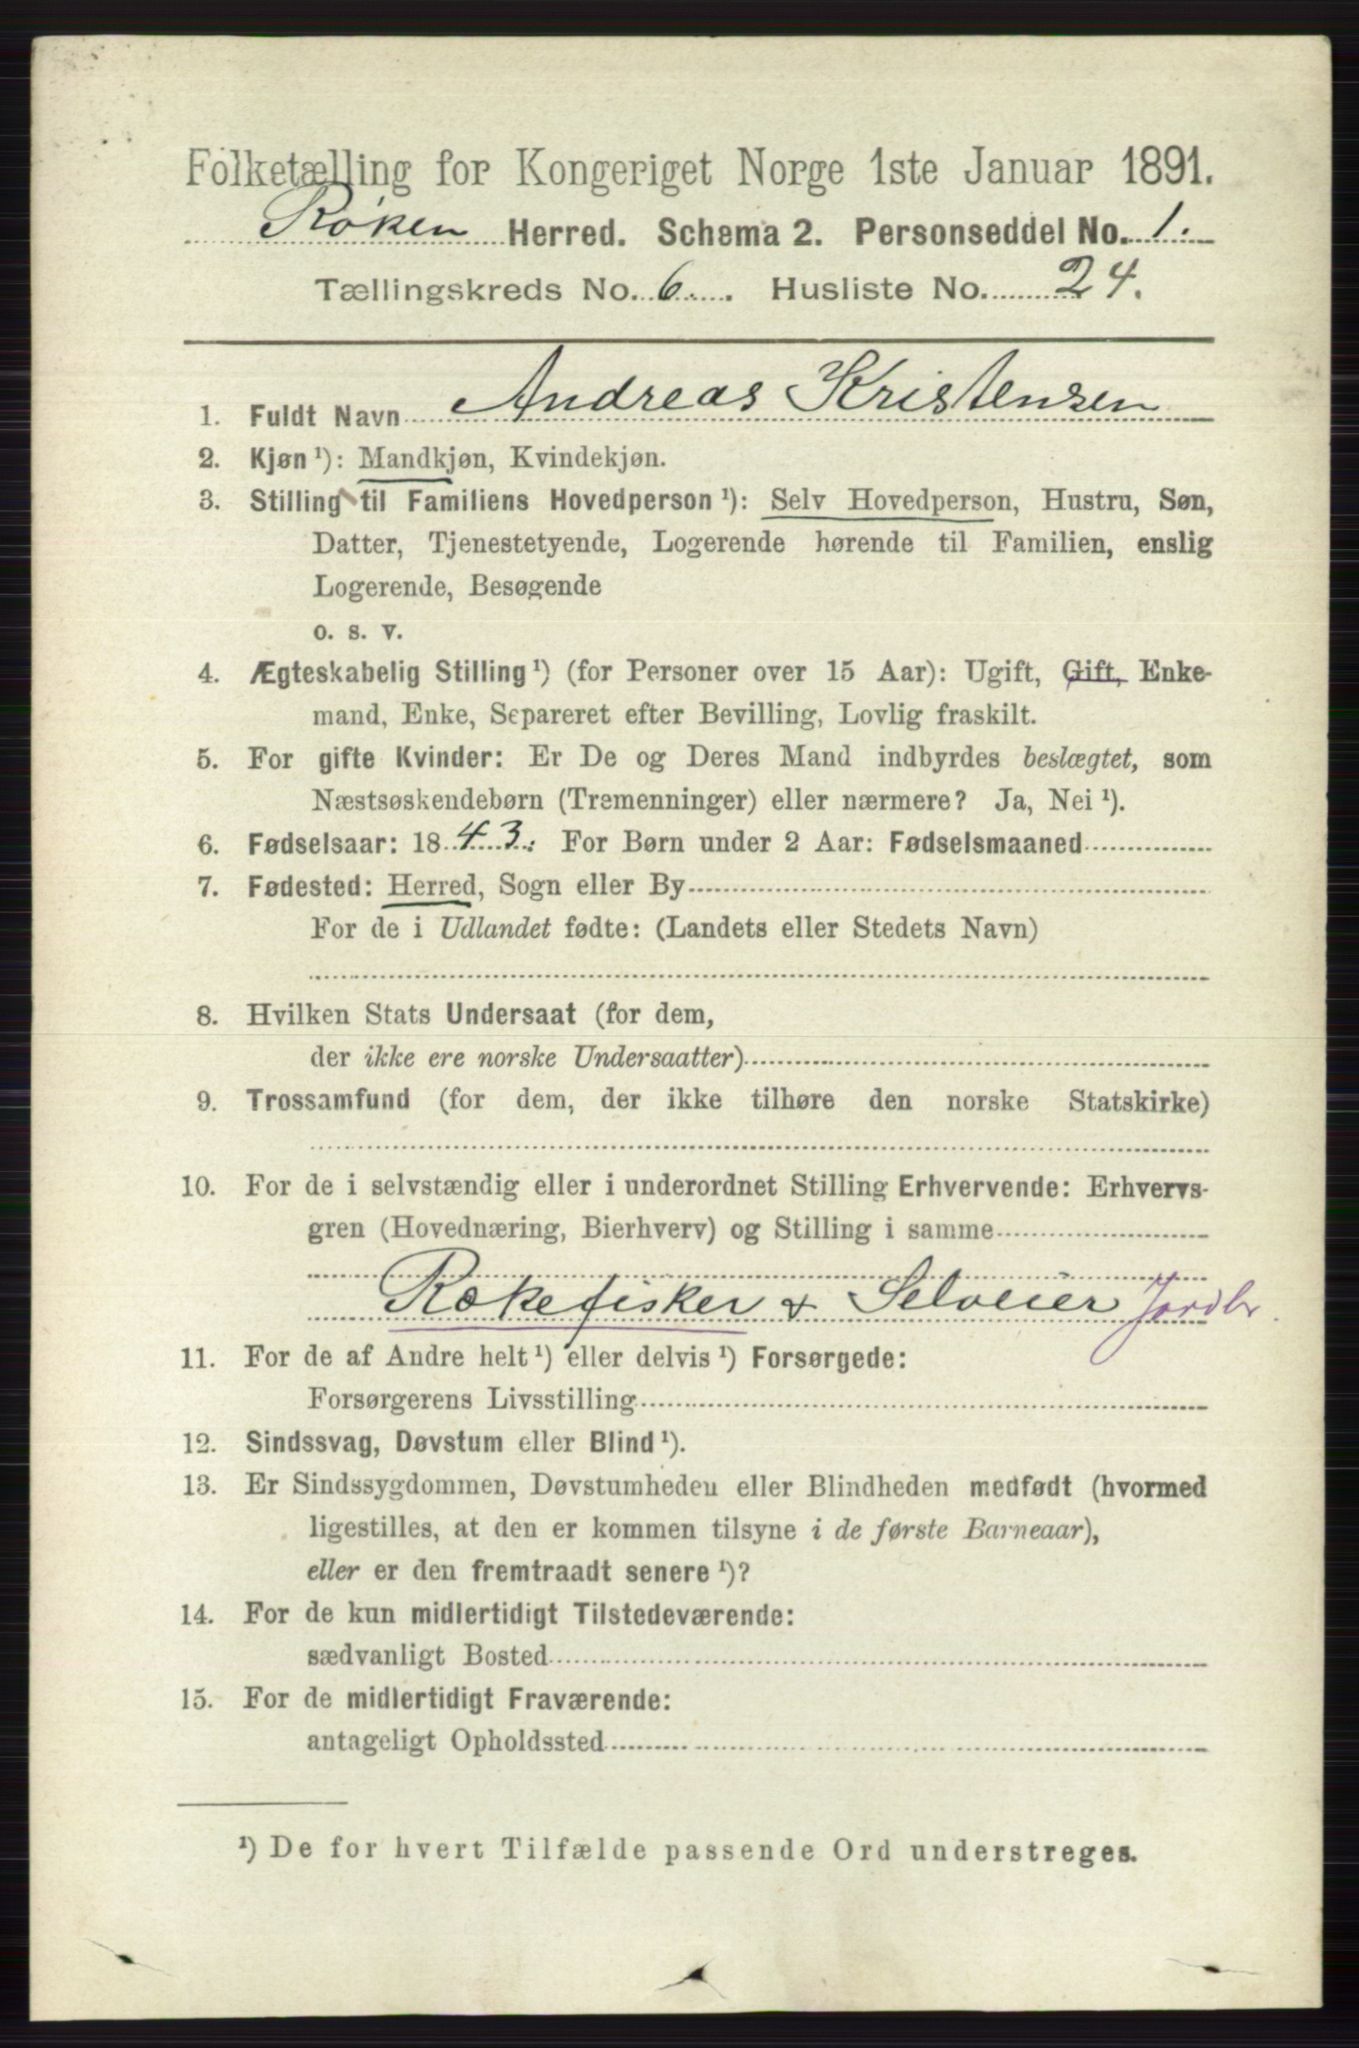 Folketælling for Kongeriget Norge 1ste Januar 1891.
Røken Herred. Schema 2. Personseddel No. 1.
Tællingskreds No. 6. Husliste No. 24.
1. Fuldt Navn Andreas Kristensen
2. Kjøn ¹): Mandkjøn, Kvindekjøn.
3. Stilling til Familiens Hovedperson ¹): Selv Hovedperson, Hustru, Søn,
Datter, Tjenestetyende, Logerende hørende til Familien, enslig
Logerende, Besøgende
o. s. v.
4. Ægteskabelig Stilling ¹) (for Personer over 15 Aar): Ugift, Gift, Enke-
mand, Enke, Separeret efter Bevilling, Lovlig fraskilt.
5. For gifte Kvinder: Er De og Deres Mand indbyrdes beslægtet, som
Næstsøskendebørn (Tremenninger) eller nærmere? Ja, Nei ¹).
6. Fødselsaar: 1843. For Børn under 2 Aar: Fødselsmaaned
7. Fødested: Herred, Sogn eller By
For de i Udlandet fødte: (Landets eller Stedets Navn)
8. Hvilken Stats Undersaat (for dem,
der ikke ere norske Undersaatter)
9. Trossamfund (for dem, der ikke tilhøre den norske Statskirke)
10. For de i selvstændig eller i underordnet Stilling Erhvervende: Erhvervs-
gren (Hovednæring, Bierhverv) og Stilling i samme
Rækefisker & Selveier Jordbr.
11. For de af Andre helt ¹) eller delvis ¹) Forsørgede:
Forsørgerens Livsstilling
12. Sindssvag, Døvstum eller Blind ¹).
13. Er Sindssygdommen, Døvstumheden eller Blindheden medfødt (hvormed
ligestilles, at den er kommen tilsyne i de første Barneaar),
eller er den fremtraadt senere ¹)?
14. For de kun midlertidigt Tilstedeværende:
sædvanligt Bosted
15. For de midlertidigt Fraværende:
antageligt Opholdssted
¹) De for hvert Tilfælde passende Ord understreges.